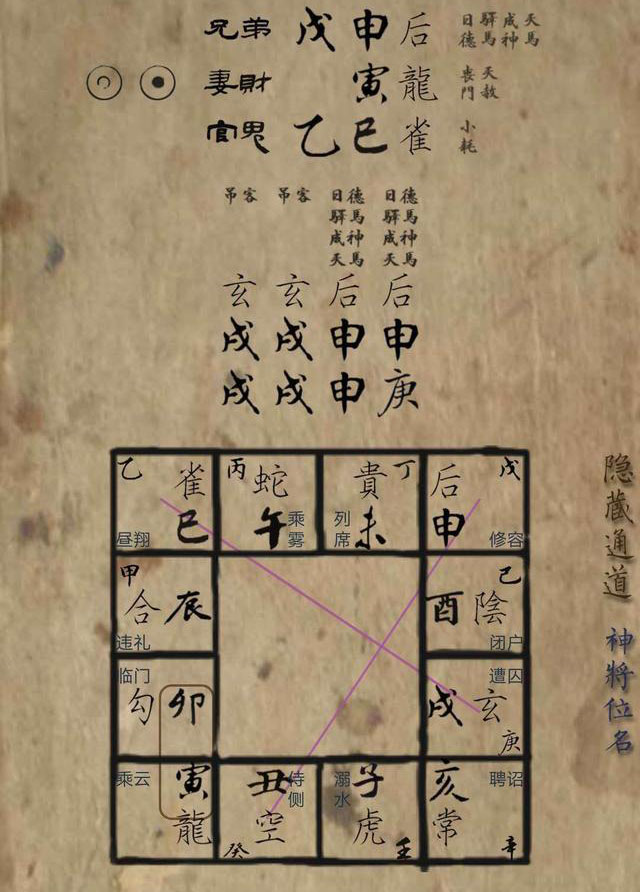 兄弟 戊 申 后 日德 驛馬 成神 天馬
妻財 寅 龍 喪門 天赦
官鬼 乙 巳 雀 小耗
吊客 吊客 日德 日德
驛馬 驛馬
成神 成神
天馬 天馬
玄 玄 后 后
戌 戌 申 申
戌 戌 申 庚
乙 雀 丙 蛇 貴 丁 后 戊
昼翔 巳 午 乘雾 列席 未 申 修容
甲 己
合 辰 酉 陰
违礼 闭户
临门 遭囚
勾 卯 戌 玄
庚
乘云 寅 丑 侍侧 溺水 子 亥 聘诏
龍 空 虎 常
癸 壬 辛
隐藏通道
神將位名